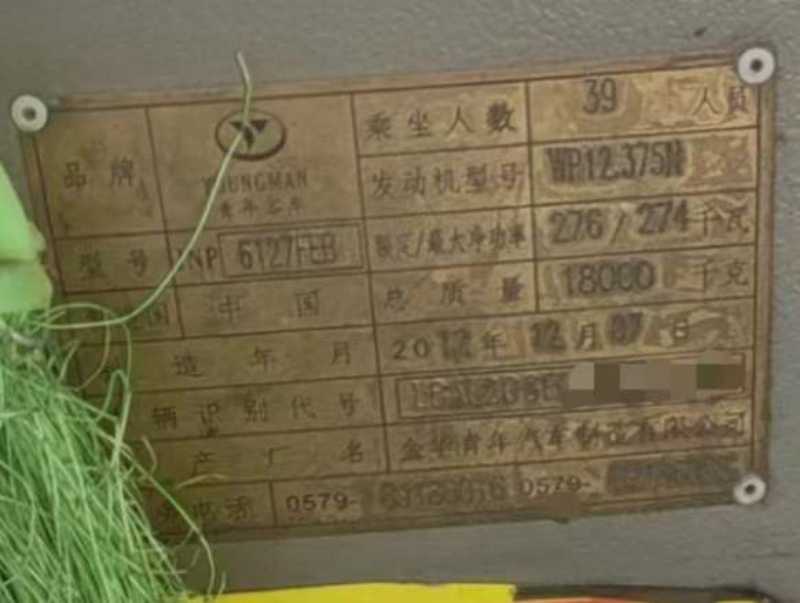 品牌 YOUNGMAN 青年客车 乘坐人数 39 人员
发动机型号 WP12.375N
型号 JNP 6127FEB 额定/最大净功率 276/274 千瓦
国 中国 总质量 18000 千克
造年月 2012年12月07日
辆识别代号
产厂名 金华青年汽车制造有限公司
0579- 0579-